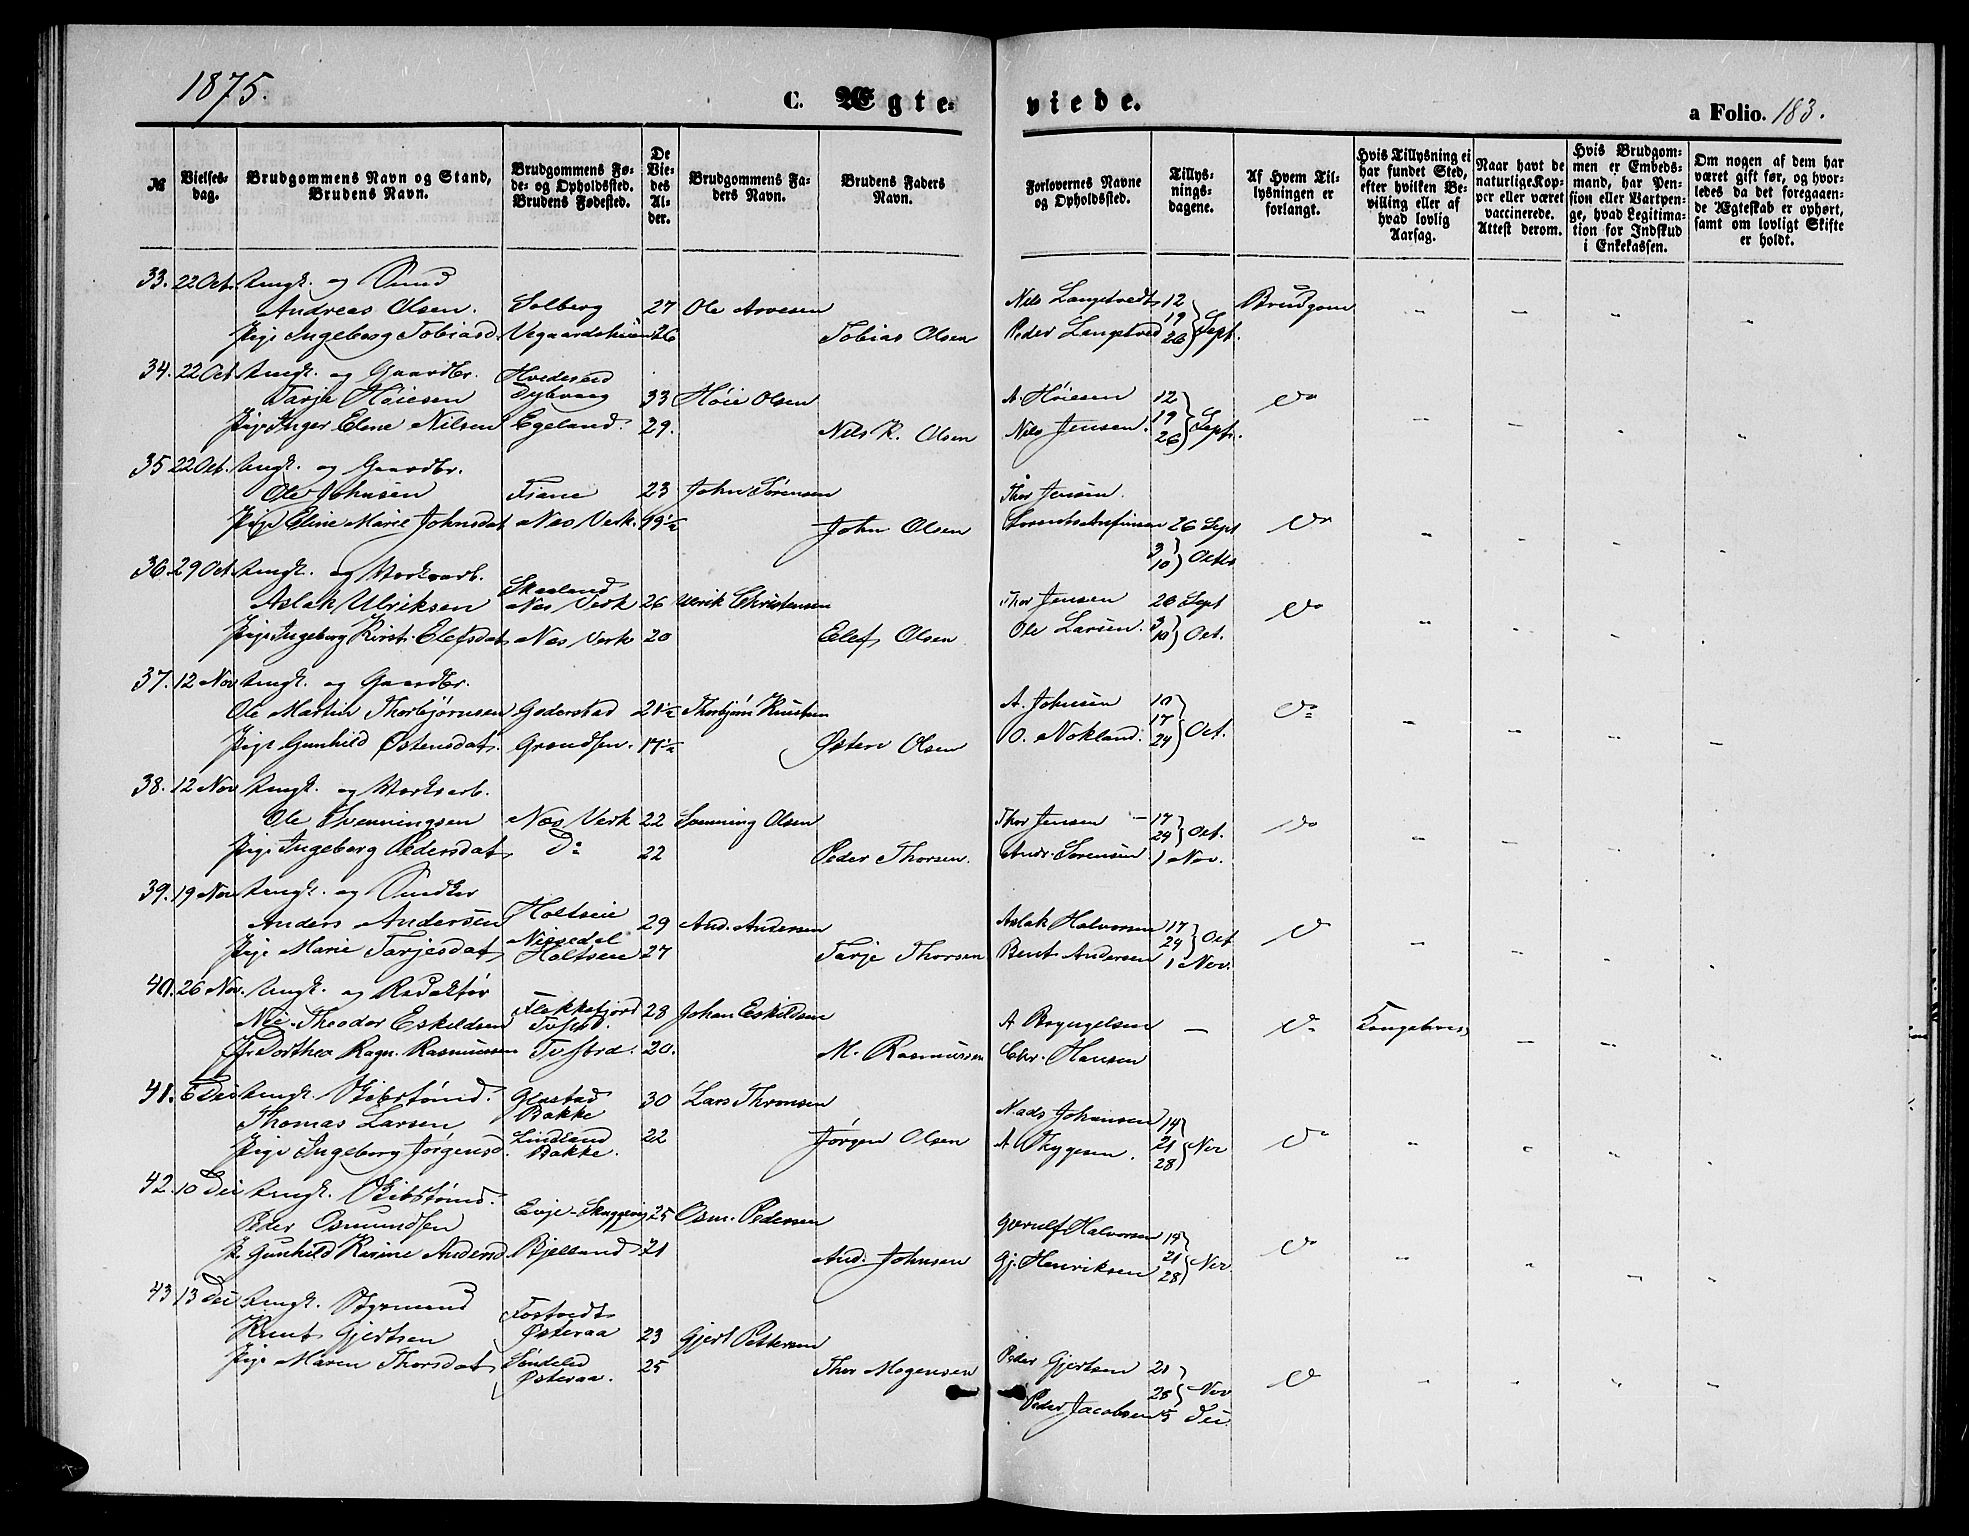 1875.
C. Ægte-
viede.
a Folio. 183.
№
Vielses-
dag.
Brudgommens Navn og Stand,
Brudens Navn.
Brudgommens Fø-
de- og Opholdssted.
Brudens Fødested.
De
Vie-
des
Al-
der.
Brudgommens Fa-
ders Navn.
Brudens Faders
Navn.
Forlovernes Navne
og Opholdssted.
Tillys-
nings-
dagene.
Af Hvem Til-
lysningen er
forlangt.
Hvis Tillysning ei
har fundet Sted,
efter hvilken Be-
villing eller af
hvad lovlig
Aarsag.
Naar havt de
naturlige Kop-
per eller været
vaccinerede.
Attest derom.
Hvis Brudgom-
men er Embeds-
mand, har Pen-
sion eller Vartpen-
ge, hvad Legitima-
tion for Indskud
i Enkekassen.
Om nogen af dem har
været gift før, og hvor-
ledes da det foregaaen-
de Ægteskab er ophørt,
samt om lovligt Skifte
er holdt.
33. 22 Oct. Ungk. og Smed
Andreas Olsen. Solberg 27 Ole Arvesen Nils Langtvedt 12 Brudgom
Pige Ingeborg Tobiasd. Vegaardsheien 26 Tobias Olsen Peder Langtved 19 26 Sept.
34. 22 Oct Ungk. og Gaardbr. Hvideseid
Tarje Høiesen Dybvaag 33 Høie Olsen A. Høiesen 12 Do
Pige Inger Elene Nilsen Egeland. 29. Nils K. Olsen Nils Jensen. 19 26 Sept.
35 22 Oct. Ungk. og Gaardbr.
Ole Johnsen Fiane 23 John Sørensen Thor Jensen.
Pige Eline Marie Johnsdat Næs Verk. 19½ John Olsen 26 Sept Do
3 10 Octbr
36. 29 Oct. Ungk. og Verksarb. Skaaland
Aslak Ulriksen Næs Verk 26 Ulrik Christensen Thor Jensen 26 Sept Do
Pige Ingeborg Kirst. Elefsdat Næs Verk 20 Elef Olsen Ole Larsen. 3 10 Oct.
37. 12 Nov Ungk. og Gaardbr.
Ole Martin Thorbjørnsen Goderstad 21½ Thorbjørn Knutsen A. Johnsen 10 Do
Pige Gunhild Østensdat. Grændsen. 17½ Østen Olsen O. Nokland. 17 24 Oct.
38. 12 Nov Ungk. og Verksarb.
Ole Svenningsen Næs Verk 22 Svenning Olsen Thor Jensen 17 Do
Pige Ingeborg Pedersdat Do 22 Peder Thorsen. Andr. Sørensen 24 Oct. 1 Nov.
39. 19 Nov Ungk. og Snedker
Anders Andersen Holtseie 29 And. Andersen Aslak Halvorsen 17 Do
Pige Marie Tarjesdat Nissedal Holtseie 27 Tarje Thorsen Bent Andersen 24 Oct 1 Nov.
40. 26 Nov. Ungk. og Redaktør
Nic. Theodor Eskildsen Flekkefjord Tvstrd. 28 Johan Eskildsen A Bryngelsen — Do
Jfr Dorthea Ragn. Rasmussen Tvstrd. 20. M. Rasmussen Chr. Hansen
41. 6 Dec Ungk. Skibstømd. Glastad
Thomas Larsen Bakke 30 Lars Thronsen Mads Johansen 14
Pige Ingeborg Jørgensd. Lindland Bakke. 22 Jørgen Olsen A Thygesen. 21 28 Nov Do
42. 10 Dec Ungk. Skibstømd.
Peder Osmundsen Evje-Skuggevig 25 Osm. Pedersen Gjerulf Halvorsen 14
P. Gunhild Karine Andersd Bjelland 21 And. Johnsen Gj. Henriksen 21 28 Nov Do
43 13 Dec Ungk. Styrmand Fostvedt
Knut Gjertsen Østeraa 23 Gjert Pettersen
Pige Maren Thorsdat Søndeled Østeraa. 25 Thor Mogensen Peder Gjertsen 21 Do
Peder Jacobsen 28 Nov 5 Dec